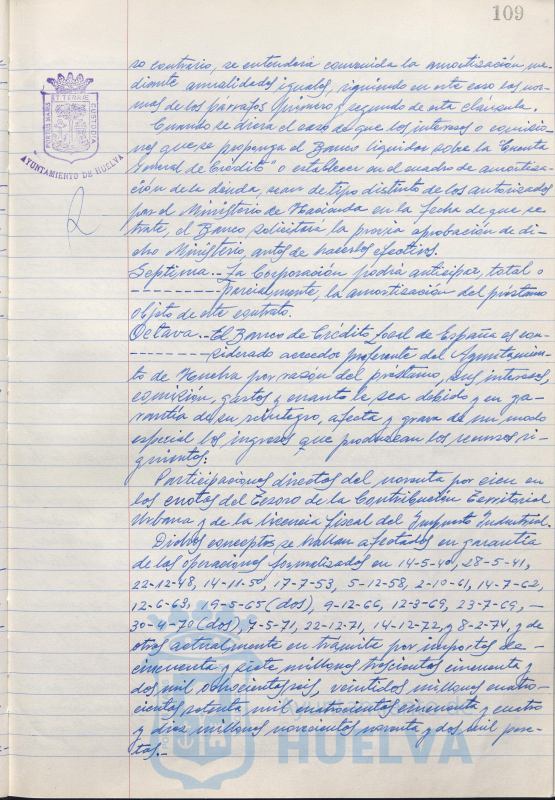 109
so contrario, se entenderá convenida la amortización me-
diante anualidades iguales, siguiendo en este caso las nor-
mas de los párrafos primero y segundo de esta cláusula.
Cuando se diera el caso de que los intereses o comisio-
nes que se proponga el Banco liquidar sobre la "Cuenta
General de Crédito" o establecer en el cuadro de amortiza-
ción de la deuda, sean de tipo distinto de los autorizados
por el Ministerio de Hacienda en la fecha de que se
trate, el Banco solicitará la previa aprobación de di-
cho Ministerio, antes de hacerlos efectivos.
Séptima.- La Corporación podrá anticipar, total o
---------parcialmente, la amortización del préstamo
objeto de este contrato.
Octava.- El Banco de Crédito Local de España es con-
--------siderado acreedor preferente del Ayuntamien-
to de Huelva por razón del préstamo, sus intereses,
comisión, gastos y cuanto le sea debido y en ga-
rantía de su reintegro, afecta y grava de un modo
especial los ingresos que produzcan los recursos si-
guientes:
Participaciones directas del noventa por cien en
las cuotas del Tesoro de la Contribución Territorial
Urbana y de la licencia fiscal del Impuesto Industrial.
Dichos conceptos se hallan afectados en garantía
de las operaciones formalizadas en 14-5-40, 28-5-41,
22-12-48, 14-11-50, 17-7-53, 5-12-58, 2-10-61, 14-7-62,
12-6-63, 19-5-65 (dos), 9-12-66, 12-3-69, 23-7-69, -
30-4-70 (dos), 7-5-71, 22-12-71, 14-12-72, y 8-2-74, y de
otras actualmente en trámite por importes de-
cincuenta y siete millones trescientas cincuenta y
dos mil ochocientas seis, veintidós millones cuatro-
cientas setenta mil cuatrocientas cincuenta y cuatro
y diez millones novecientas noventa y dos mil pese-
tas.-
PORTUS MARIS ET TERRAE CUSTODIA
AYUNTAMIENTO DE HUELVA
HUELVA